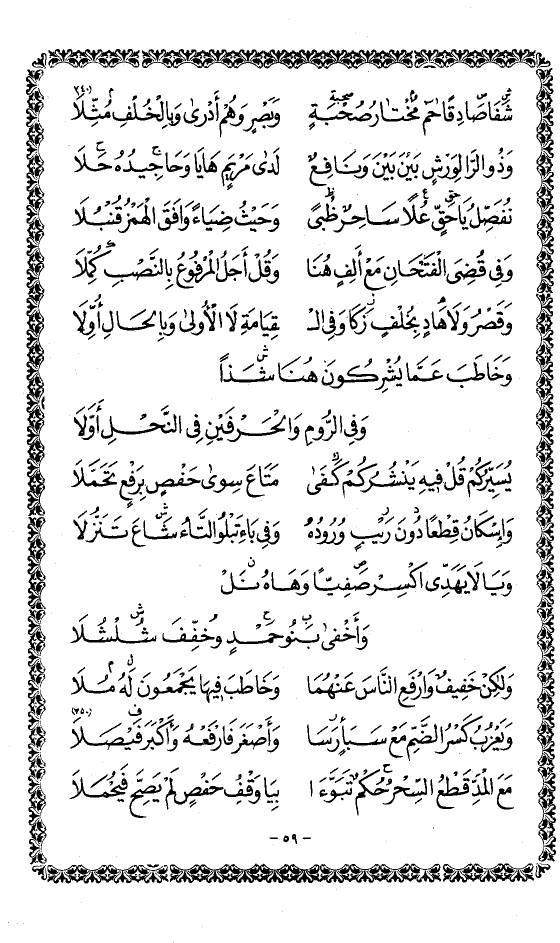 شَفَا صَادِقًا حٰمٓ مُخْتَارُ صُحْبَةٍ وَبَصْرٍ وَهُمْ أَدْرٰى وَبِالْخُلْفِ مُثِّلَا (٧٤٠)
وَذُو الرَّا لِوَرْشٍ بَيْنَ بَيْنَ وَنَافِعٌ لَدٰى مَرْيَمٍ هَايَا وَحَا جِيدُهُ حَلَا
نُفَصِّلُ يَا حَقٍّ عُلًا سَاحِرٌ ظُبًى وَحَيْثُ ضِيَاءً وَافَقَ الْهَمْزُ قُنْبُلَا
وَفِى قُضِىَ الْفَتْحَانِ مَعْ أَلِفٍ هُنَا وَقُلْ أَجَلُ الْمَرْفُوعُ بِالنَّصْبِ كُمِّلَا
وَقَصْرُ وَلَا هَادٍ بِخُلْفٍ زَكَا وَفِى الْـ ـقِيَامَةِ لَا الْأُولٰى وَبِالْحَالِ أُوِّلَا
وَخَاطَبَ عَمَّا يُشْرِكُونَ هُنَا شَذًا
وَفِى الرُّومِ وَالْحَرْفَيْنِ فِى النَّحْلِ أَوَّلَا
يُسَيِّرُكُمْ قُلْ فِيهِ يَنْشُرُكُمْ كَفٰى مَتَاعَ سِوٰى حَفْصٍ بِرَفْعٍ تَحَمَّلَا
وَإِسْكَانُ قِطْعًا دُونَ رَيْبٍ وُرُودُهُ وَفِى بَاءِ تَبْلُوا التَّاءُ شَاعَ تَنَزُّلَا
وَيَا لَا يَهَدِّى اكْسِرْ صَفِيًّا وَهَاهُ نَلْ
وَأَخْفٰى بَنُو حَمْدٍ وَخُفِّفَ شُلْشُلَا
وَلٰكِنْ خَفِيفٌ وَارْفَعِ النَّاسَ عَنْهُمَا وَخَاطَبَ فِيهَا يَجْمَعُونَ لَهُ مُلَا
وَيَعْزُبُ كَسْرُ الضَّمِّ مَعْ سَبَأٍ رَسَا وَأَصْغَرَ فَارْفَعْهُ وَأَكْبَرَ فَيْصَلَا (٧٥٠)
مَعَ الْمَدِّ قَطْعُ السِّحْرِ حُكْمٌ تَبَوَّءَا بِيَا وَقْفُ حَفْصٍ لَمْ يَصِحَّ فَيُحْمَلَا
- ٥٩ -